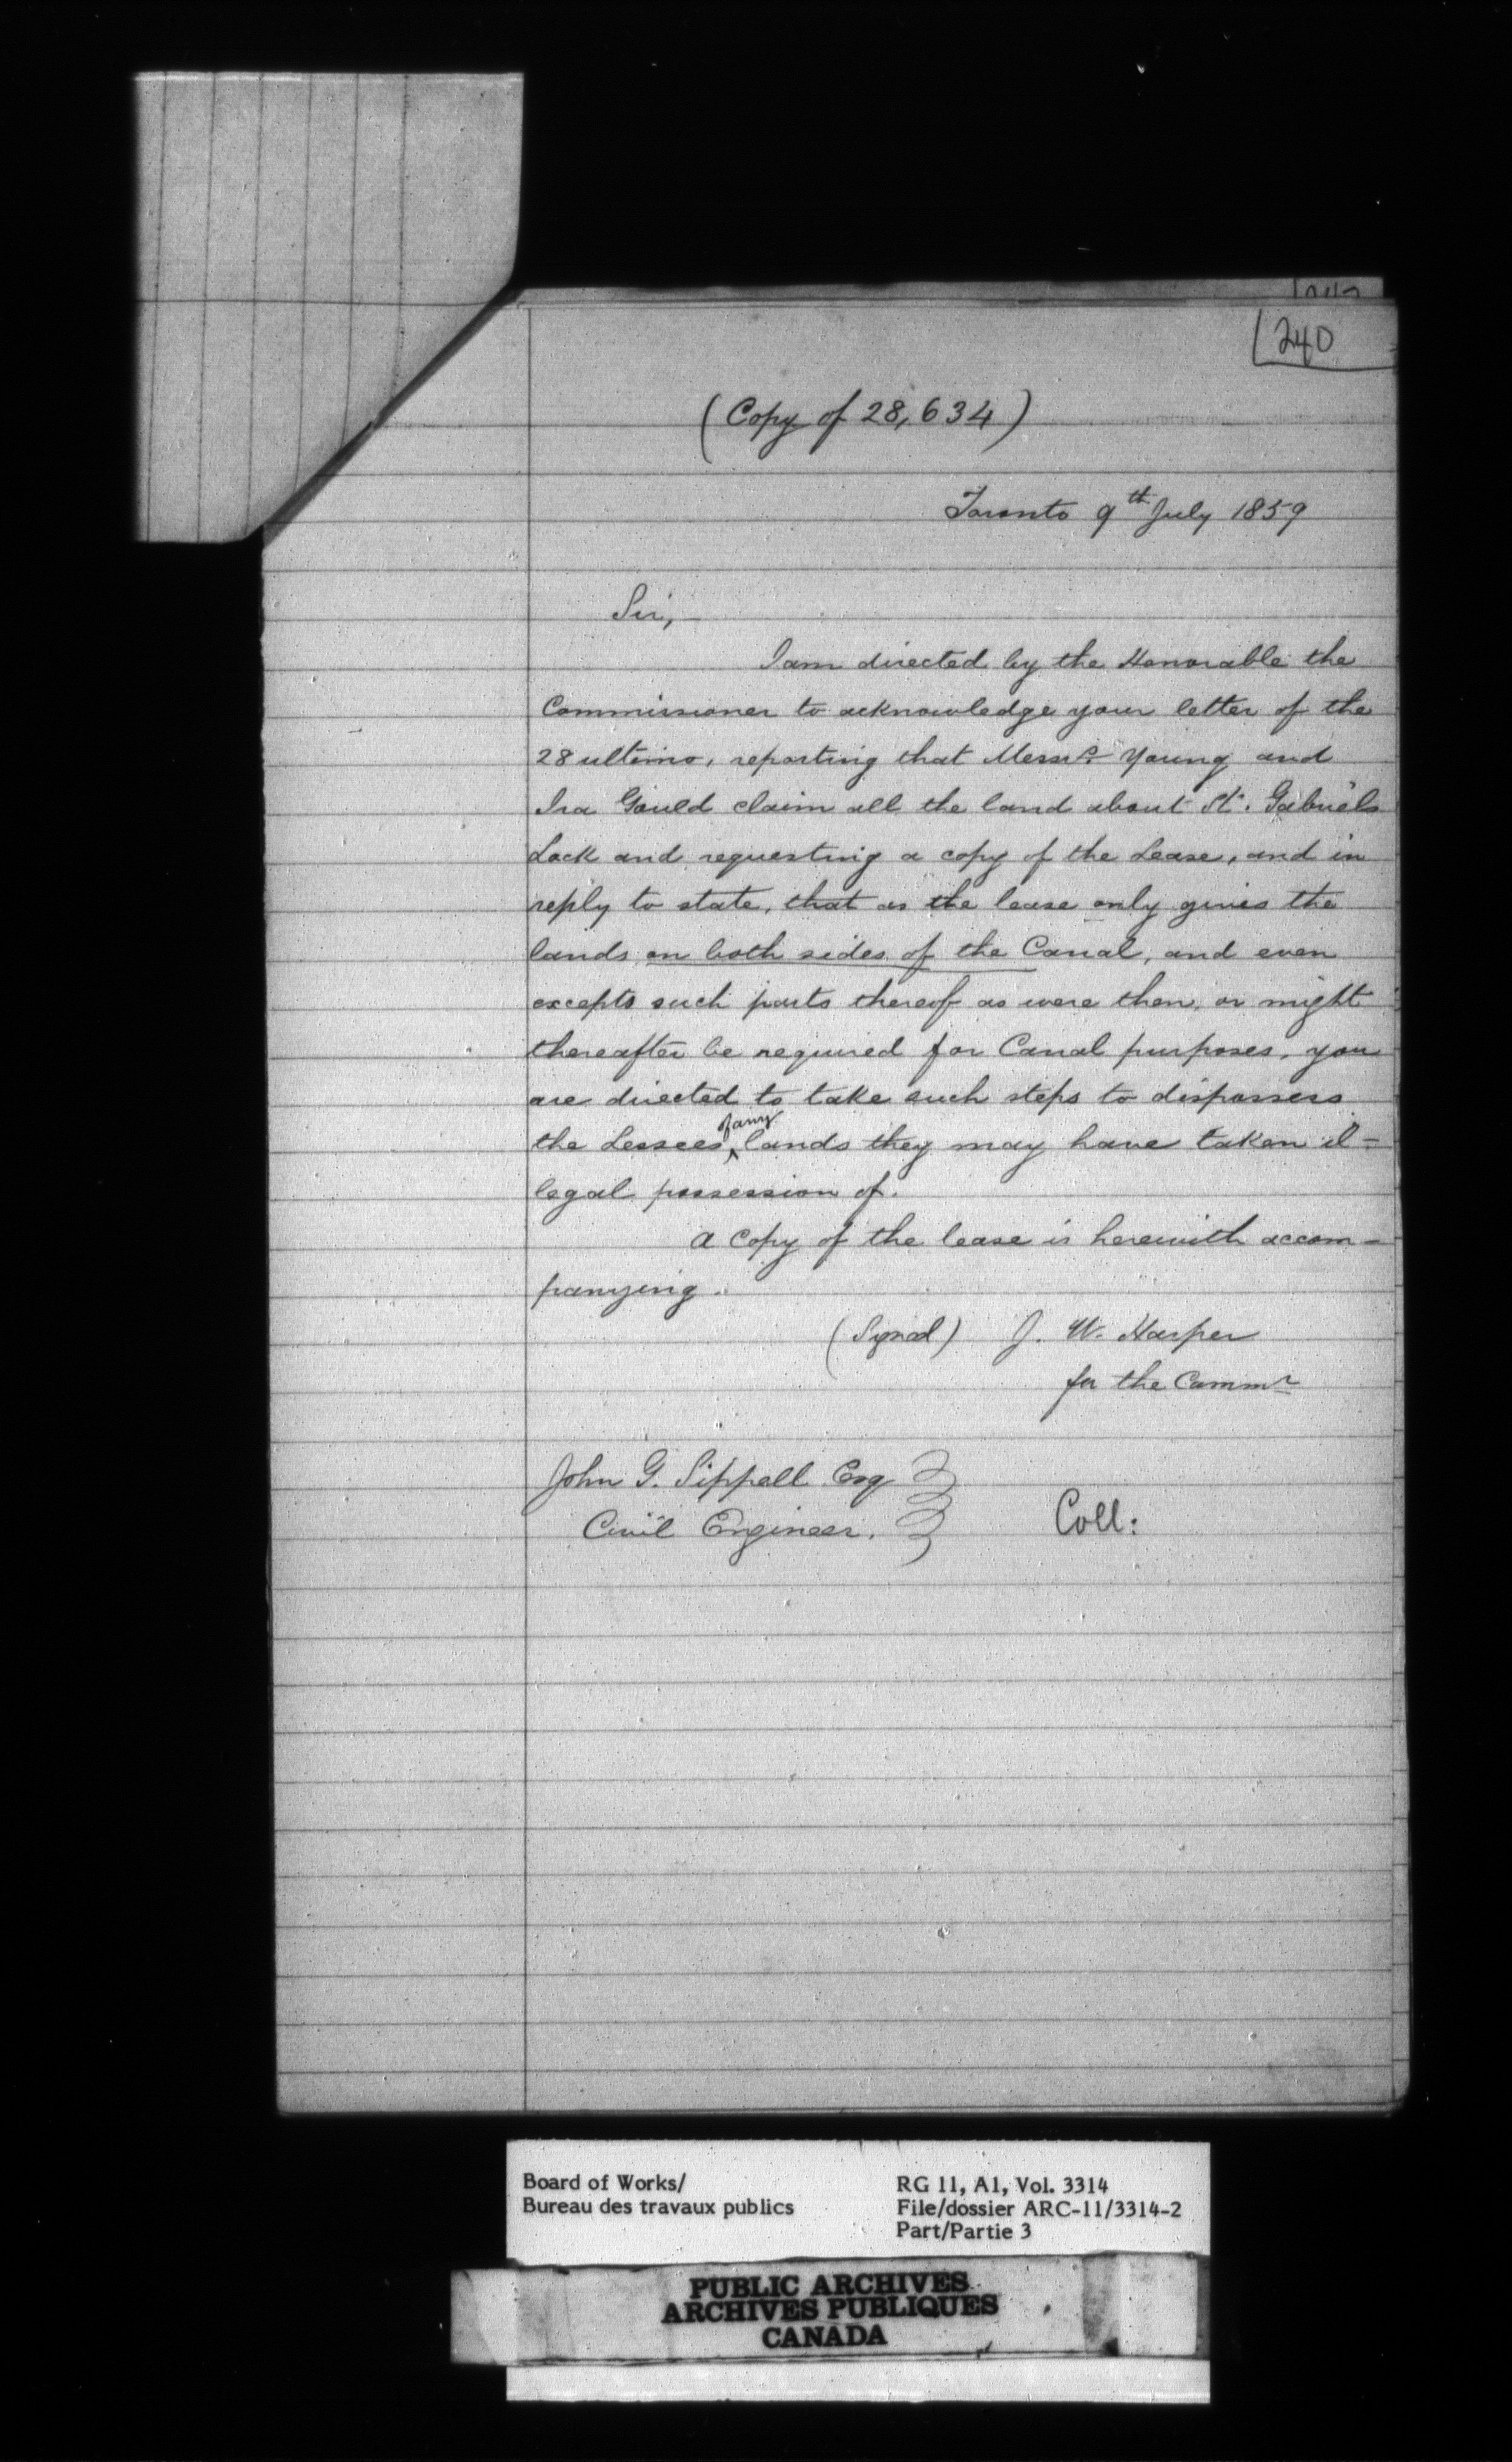 240
(Copy of 28,634)
Toronto 9th July 1859
Sir,
I am directed by the Honorable the
Commissioner to acknowledge your letter of the
28 ultimo, reporting that Messrs Young and
Ira Gould claim all the land about St. Gabriels
Lock and requesting a copy of the Lease, and in
reply to state, that as the lease only gives the
lands on both sides of the Canal, and even
excepts such parts thereof as were then, or might
thereafter be required for Canal purposes, you
are directed to take such steps to dispossess
the Lessees of any lands they may have taken il-
legal possession of.
A Copy of the lease is herewith accom-
panying.
(Signed) J. W. Harper
for the Commr
John G. Sippell Esq
Civil Engineer.
Coll:
Board of Works/
Bureau des travaux publics
RG 11, A1, Vol. 3314
File/dossier ARC-11/3314-2
Part/Partie 3
PUBLIC ARCHIVES
ARCHIVES PUBLIQUES
CANADA